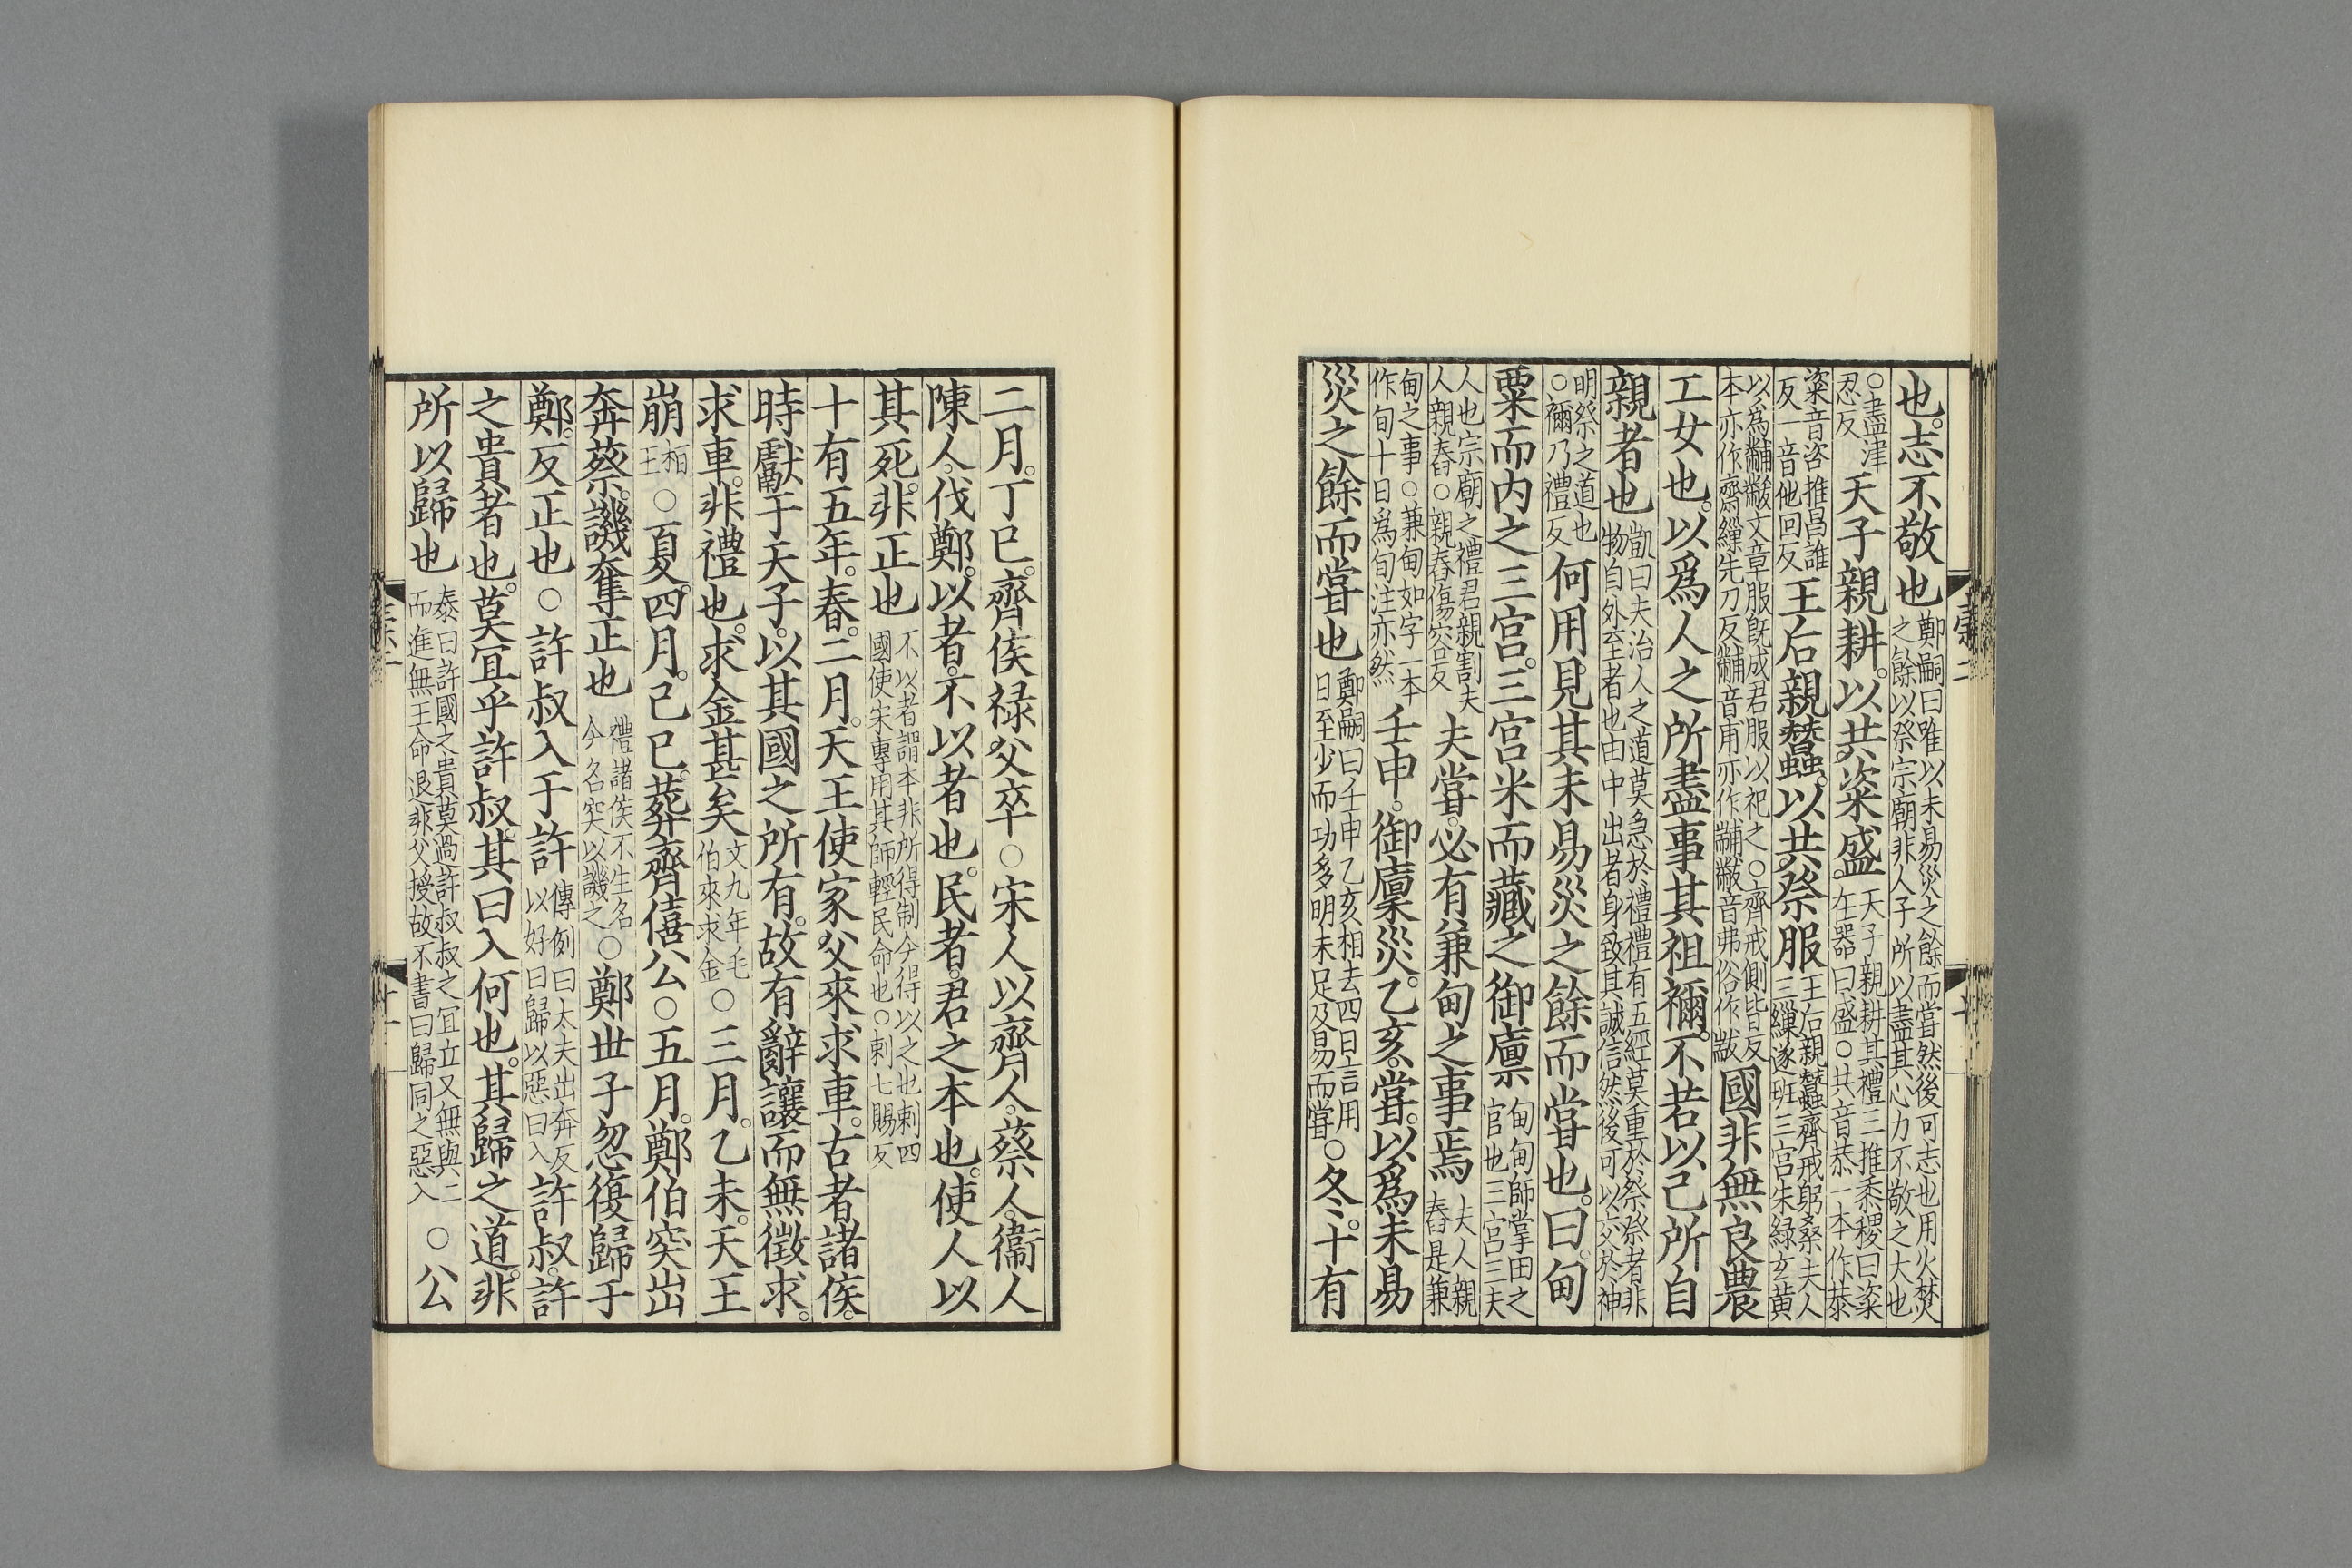 也志不敬也鄭嗣曰唯以未易災之餘而嘗然後可志也用火焚之餘以祭宗廟非人子所以盡其心力不敬之大也
○盡津忍反天子親耕以共粢盛天子親耕其禮三推黍稷曰粢在器曰盛○共音恭一本作恭
粢音咨推昌誰反一音他回反王后親蠶以共祭服王后親蠶齊戒躬桑夫人三繅遂班三宮朱綠玄黃
以爲黼黻文章服既成君服以祀之○齊戒側皆反本亦作齋繅先刀反黼音甫亦作黼黻音弗俗作黻國非無良農
工女也以爲人之所盡事其祖禰不若以己所自
親者也凱曰夫治人之道莫急於禮禮有五經莫重於祭祭者非物自外至者也由中出者身致其誠信然後可以交於神
明祭之道也○禰乃禮反何用見其未易災之餘而嘗也曰甸
粟而内之三宮三宮米而藏之御廩甸甸師掌田之官也三宮三夫
人也宗廟之禮君親割夫人親舂○親舂傷容反夫嘗必有兼甸之事焉夫人親舂是兼
甸之事○兼甸如字一本作旬十日爲旬注亦然壬申御廩災乙亥嘗以爲未易
災之餘而嘗也鄭嗣曰壬申乙亥相去四日言用日至少而功多明未足及易而嘗○冬十有
二月丁巳齊侯祿父卒○宋人以齊人蔡人衞人
陳人伐鄭以者不以者也民者君之本也使人以
其死非正也不以者謂本非所得制今得以之也刺四國使宋專用其師輕民命也○刺七賜反
十有五年春二月天王使家父來求車古者諸侯
時獻于天子以其國之所有故有辭讓而無徵求
求車非禮也求金甚矣文九年毛伯來求金○三月乙未天王
崩桓王○夏四月己巳葬齊僖公○五月鄭伯突出
奔蔡譏奪正也禮諸侯不生名今名突以譏之○鄭世子忽復歸于
鄭反正也○許叔入于許傳例曰大夫出奔反以好曰歸以惡曰入許叔許
之貴者也莫宜乎許叔其曰入何也其歸之道非
所以歸也泰曰許國之貴莫過許叔叔之宜立又無與二而進無王命退非父授故不書曰歸同之惡入○公